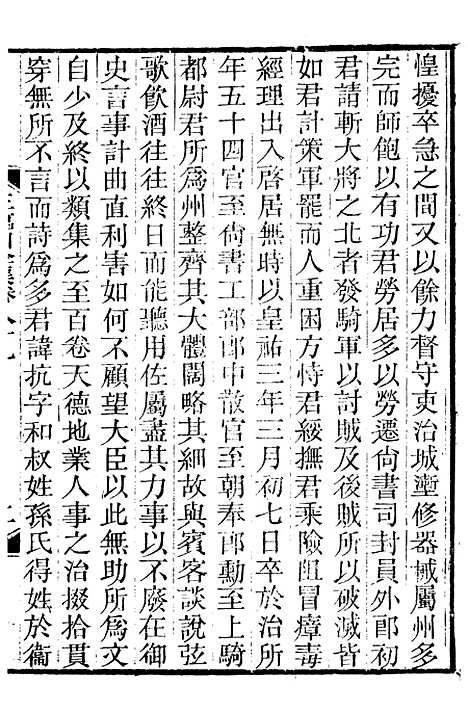 惶擾卒急之間又以餘力督守吏治城壍修器械屬州多
完而師飽以有功君勞居多以勞遷尙書司封員外郎初
君請斬大將之北者發騎軍以討賊及後賊所以破滅皆
如君計策軍罷而人重困方恃君綏撫君乘險阻冒瘴毒
經理出入啓居無時以皇祐三年三月初七日卒於治所
年五十四官至尙書工部郎中散官至朝奉郎勳至上騎
都尉君所爲州整齊其大體闊略其細故與賓客談說弦
歌飲酒往往終日而能聽用佐屬盡其力事以不廢在御
史言事計曲直利害如何不顧望大臣以此無助所爲文
自少及終以類集之至百卷天德地業人事之治掇拾貫
穿無所不言而詩爲多君諱抗字和叔姓孫氏得姓於衞